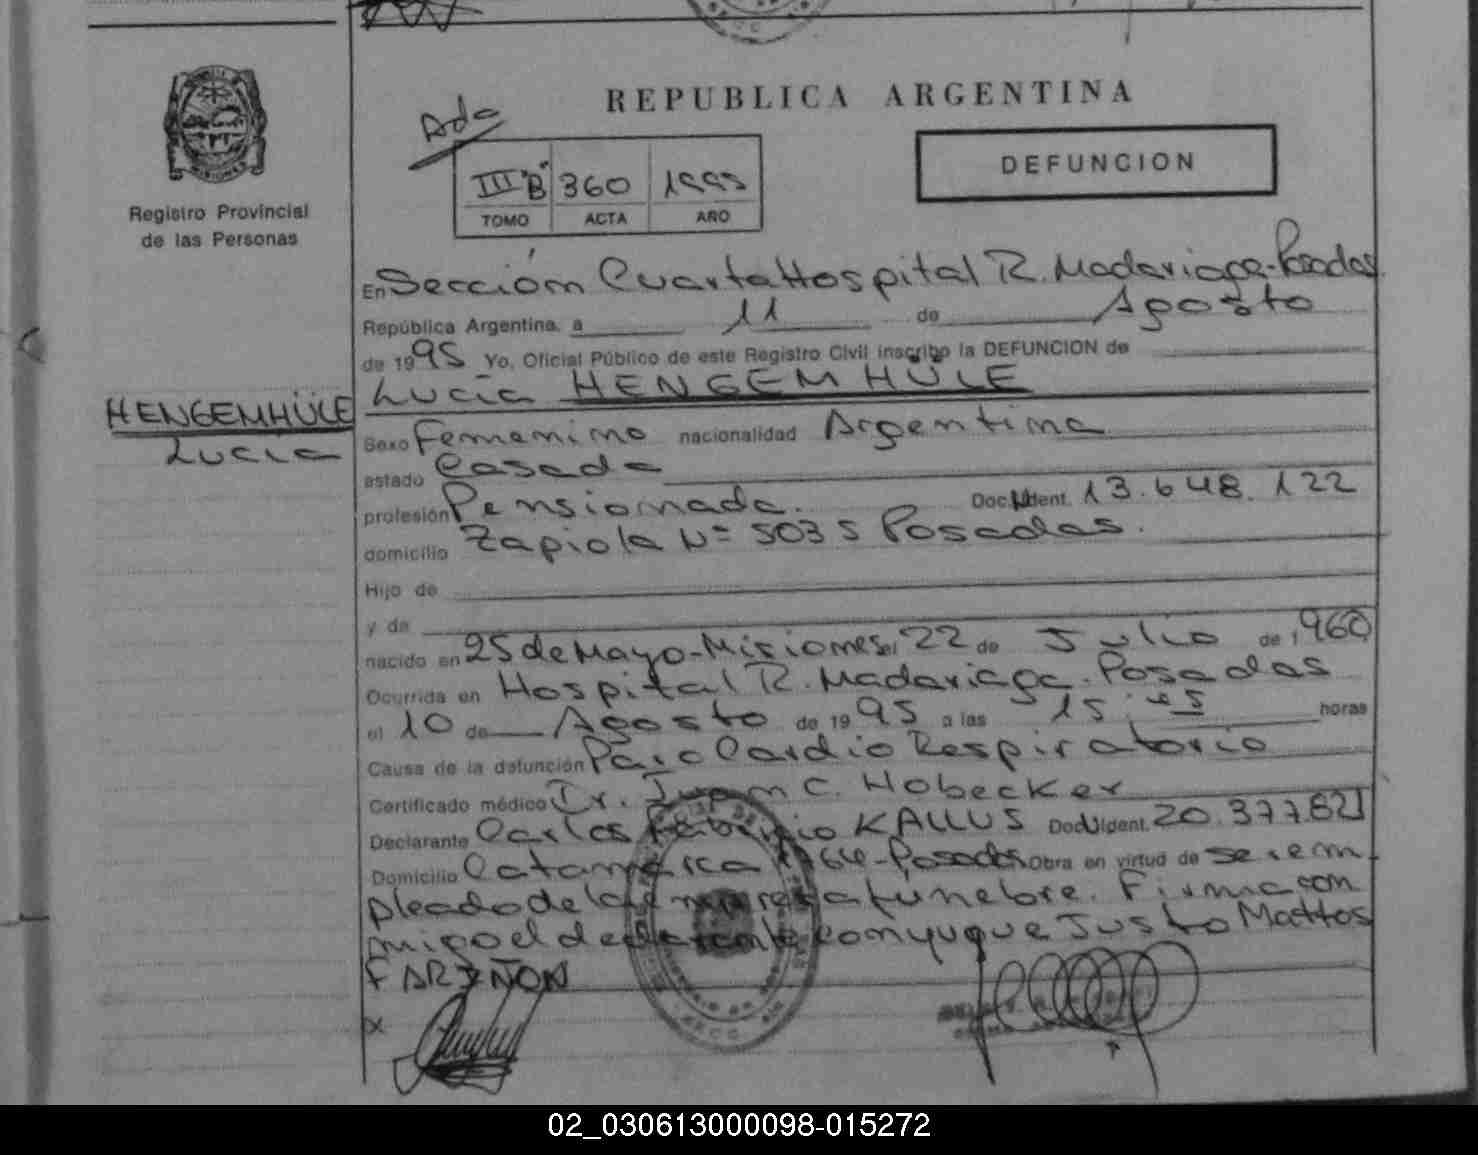 REPUBLICA ARGENTINA
Ado
III "B" 360 1995
TOMO ACTA AÑO
DEFUNCION
Registro Provincial
de las Personas
HENGEMHÜLE
Lucía
En Sección Cuarta Hospital R. Madariaga-Posadas.
República Argentina, a 11 de Agosto
de 1995 Yo, Oficial Público de este Registro Civil inscribo la DEFUNCION de
Lucía HENGEMHÜLE
Sexo Femenino nacionalidad Argentina
estado Casada
profesión Pensionada. Doc. N Ident. 13.648.122
domicilio Zapiola Nº 5035 Posadas.
Hijo de
y de
nacido en 25 de Mayo-Misiones el 22 de Julio de 1960
Ocurrida en Hospital R. Madariaga-Posadas
el 10 de Agosto de 1995 a las 15,45 horas
Causa de la defunción Paro Cardio Respiratorio
Certificado médico Dr. Juan C. Hobecker
Declarante Carlos Fabricio KALLUS Doc. N Ident. 20.377.821
Domicilio Catamarca 64-Posadas Obra en virtud de ser em
pleado de la empresa fúnebre. Firma con
migo el declarante conyuque Justo Mattos
FARIÑON
X
02_030613000098-015272